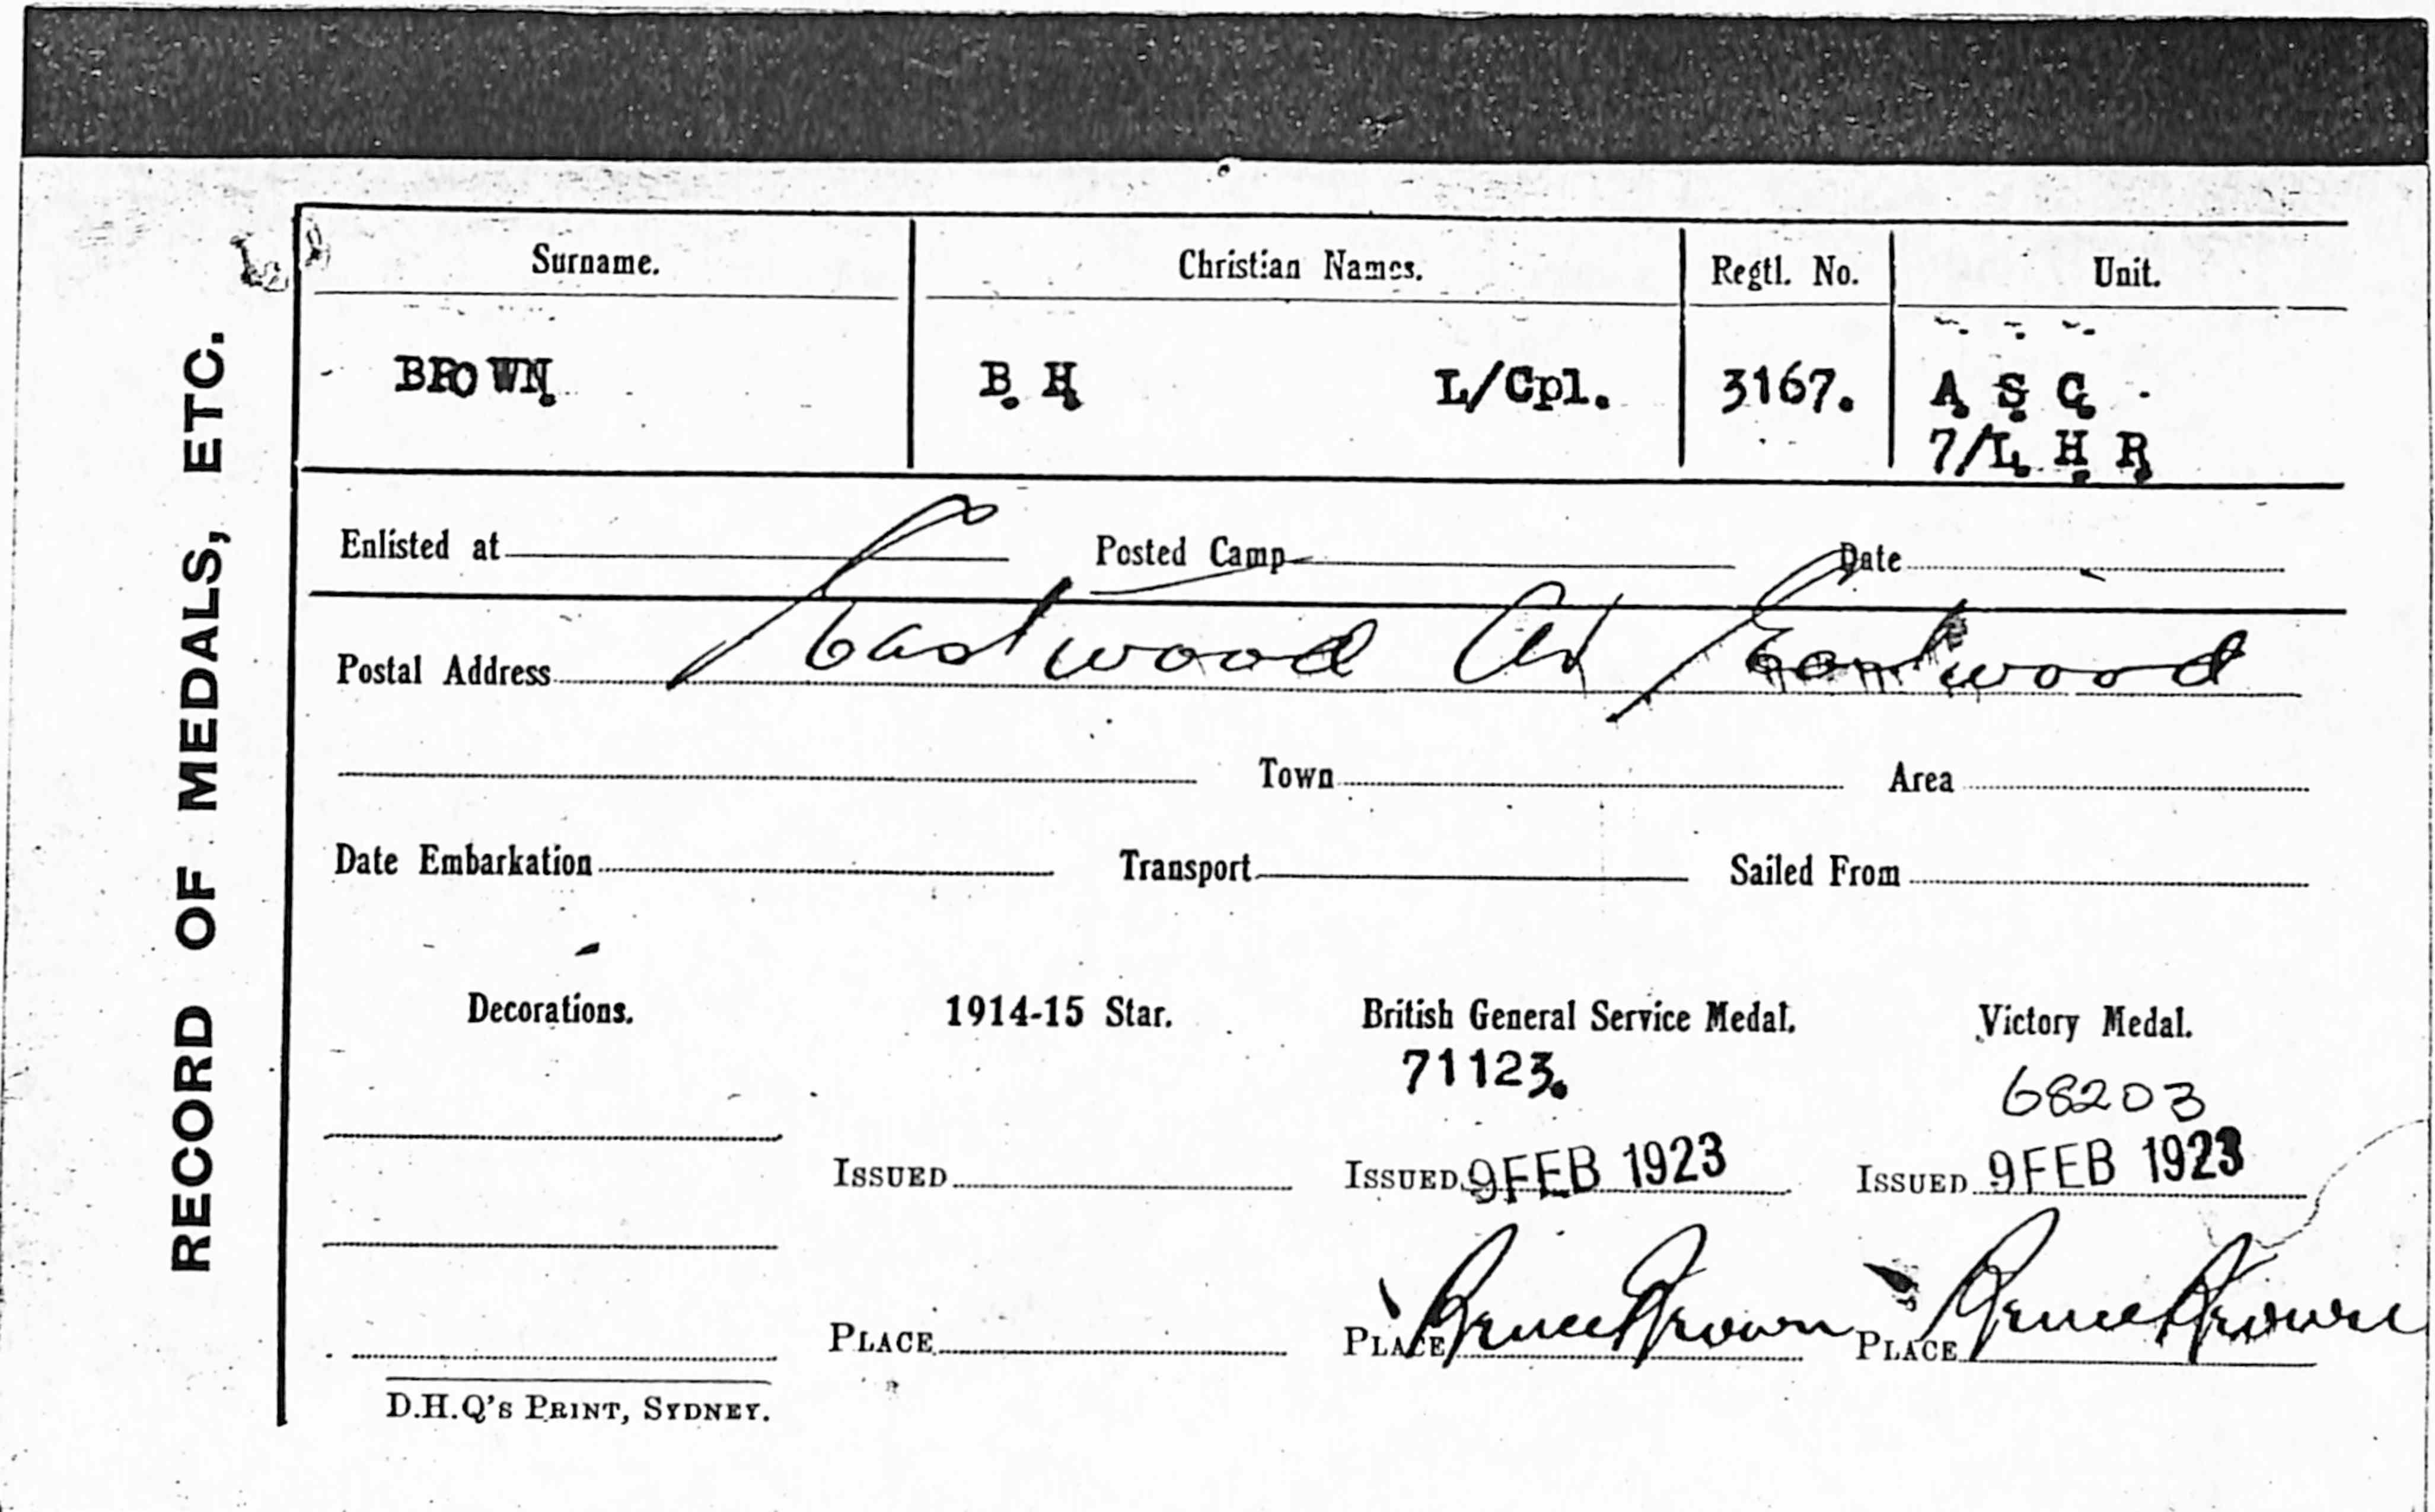 RECORD OF MEDALS, ETC.
Surname. Christian Names. Regtl. No. Unit.
BROWN. B. H. L/Cpl. 3167. A. S. C.
7/L. H. R.
Enlisted at Posted Camp Date
Postal Address Eastwood Av Eastwood
Town Area
Date Embarkation Transport Sailed From
Decorations. 1914-15 Star. British General Service Medal. Victory Medal.
71123. 68203
ISSUED ISSUED 9 FEB 1923 ISSUED 9 FEB 1923
PLACE PLACE Bruce Brown PLACE Bruce Brown
D.H.Q's PRINT, SYDNEY.